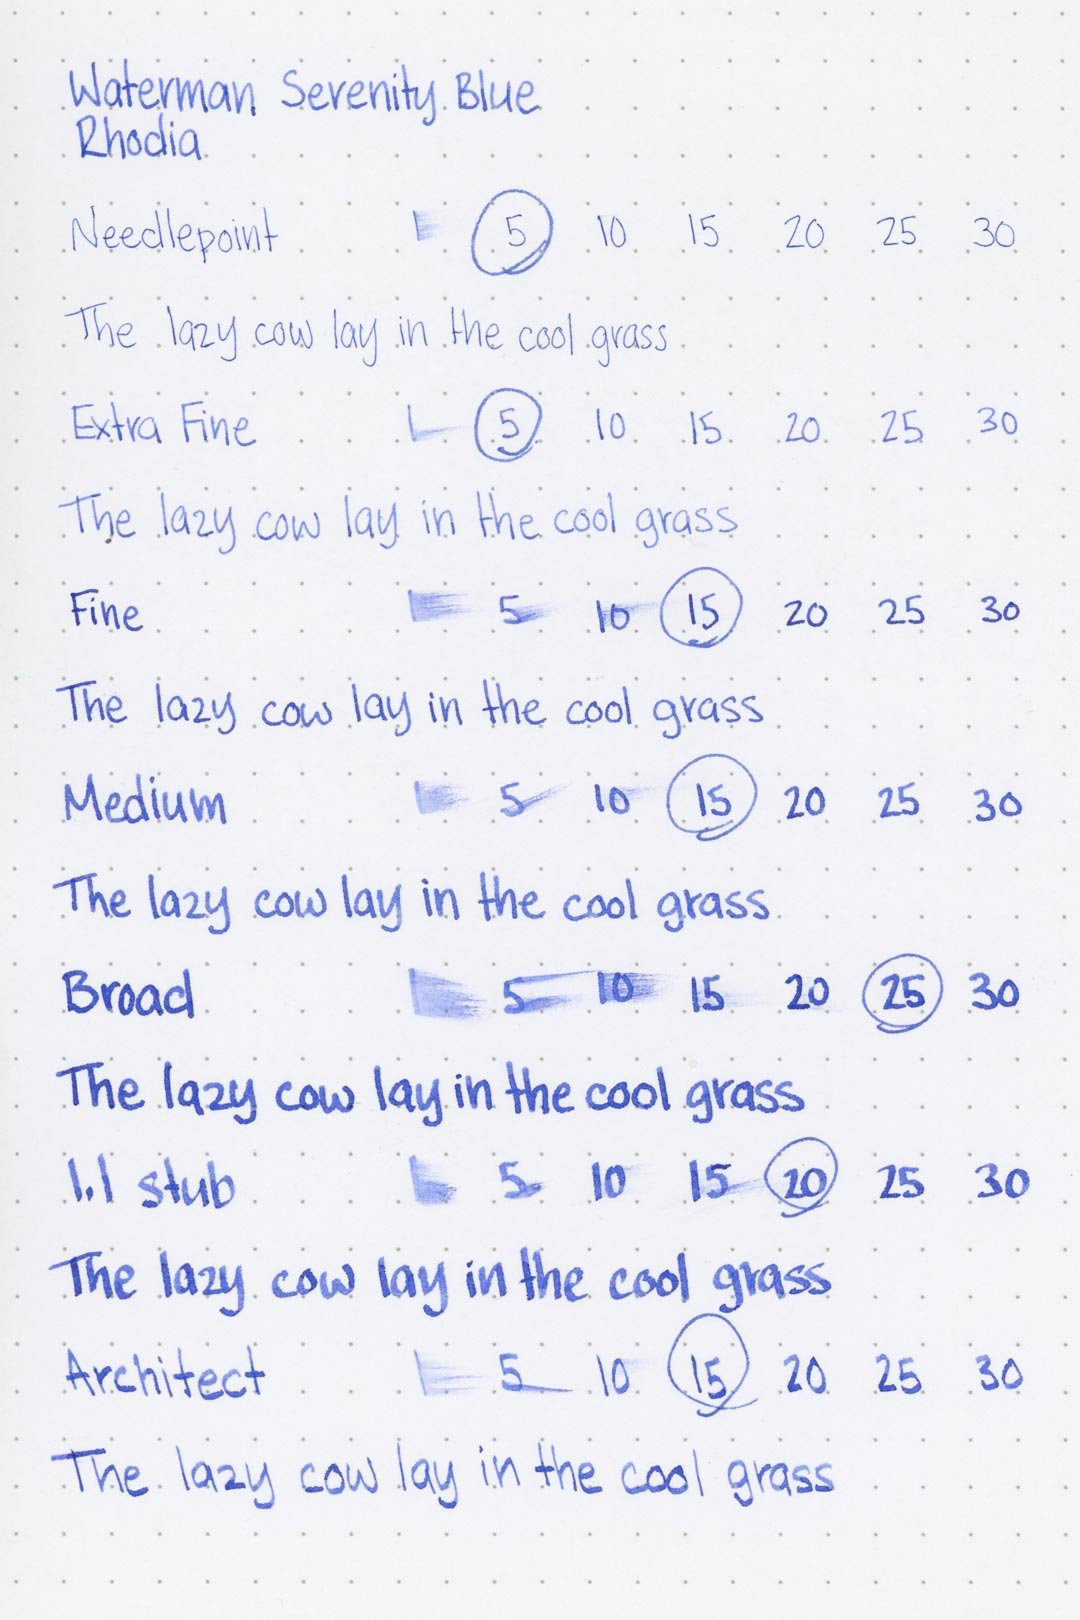 Waterman Serenity Blue
Rhodia
Needlepoint 5 10 15 20 25 30
The lazy cow lay in the cool grass
Extra Fine 5 10 15 20 25 30
The lazy cow lay in the cool grass
Fine 5 10 15 20 25 30
The lazy cow lay in the cool grass
Medium 5 10 15 20 25 30
The lazy cow lay in the cool grass
Broad 5 10 15 20 25 30
The lazy cow lay in the cool grass
1.1 stub 5 10 15 20 25 30
The lazy cow lay in the cool grass
Architect 5 10 15 20 25 30
The lazy cow lay in the cool grass